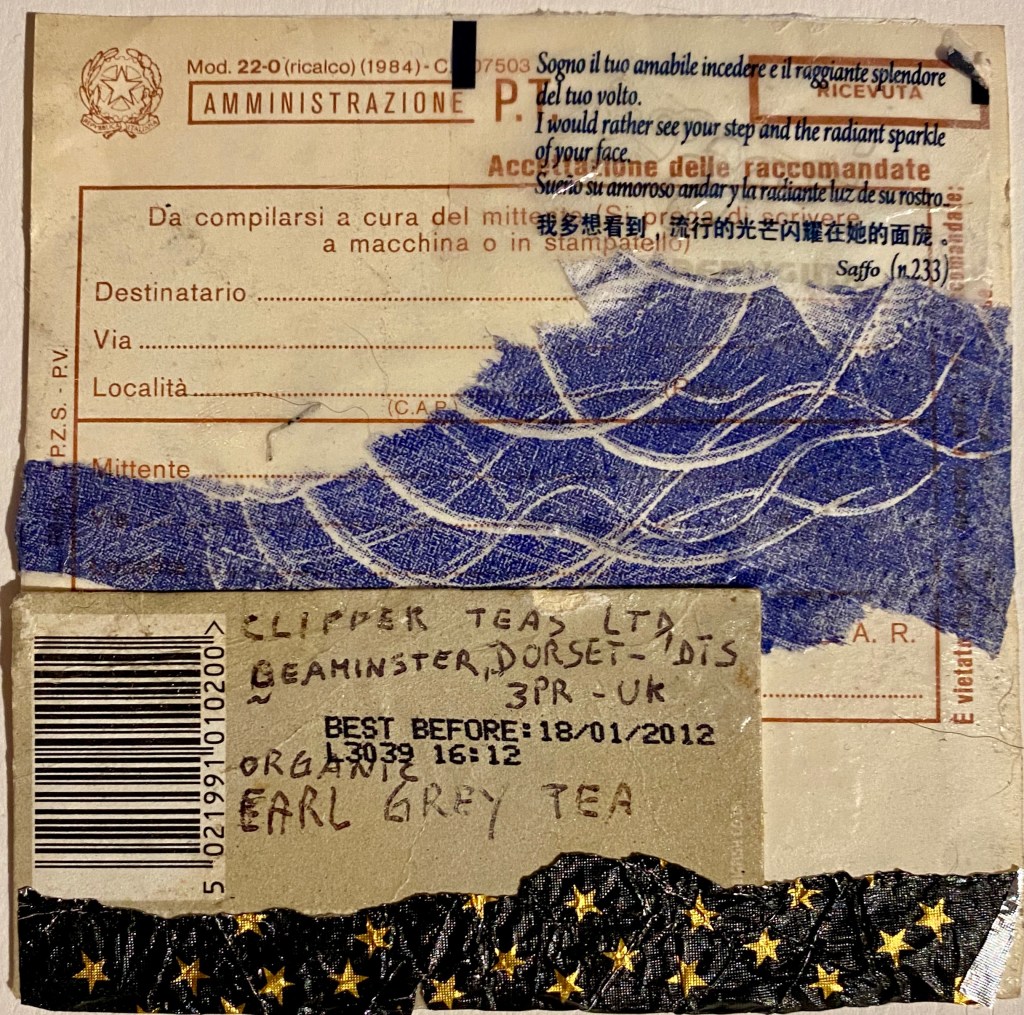 Mod. 22-O (ricalco) (1984) - C. 07503
AMMINISTRAZIONE P.T.
RICEVUTA
Sogno il tuo amabile incedere e il raggiante splendore
del tuo volto.
I would rather see your step and the radiant sparkle
of your face.
Sueño su amoroso andar y la radiante luz de su rostro.
我多想看到，流行的光芒闪耀在她的面庞。
Saffo (n.233)
Accettazione delle raccomandate
Da compilarsi a cura del mittente (Si prega di scrivere
a macchina o in stampatello)
Destinatario
Via
Località
(C.A.P.
Mittente
Via
Località
A. R.
P.Z.S. - P.V.
È vietato
comandate:
CLIPPER TEAS LTD
BEAMINSTER, DORSET - DTS
3PR - UK
BEST BEFORE: 18/01/2012
L3039 16:12
ORGANIC
EARL GREY TEA
5 021991 010200 >